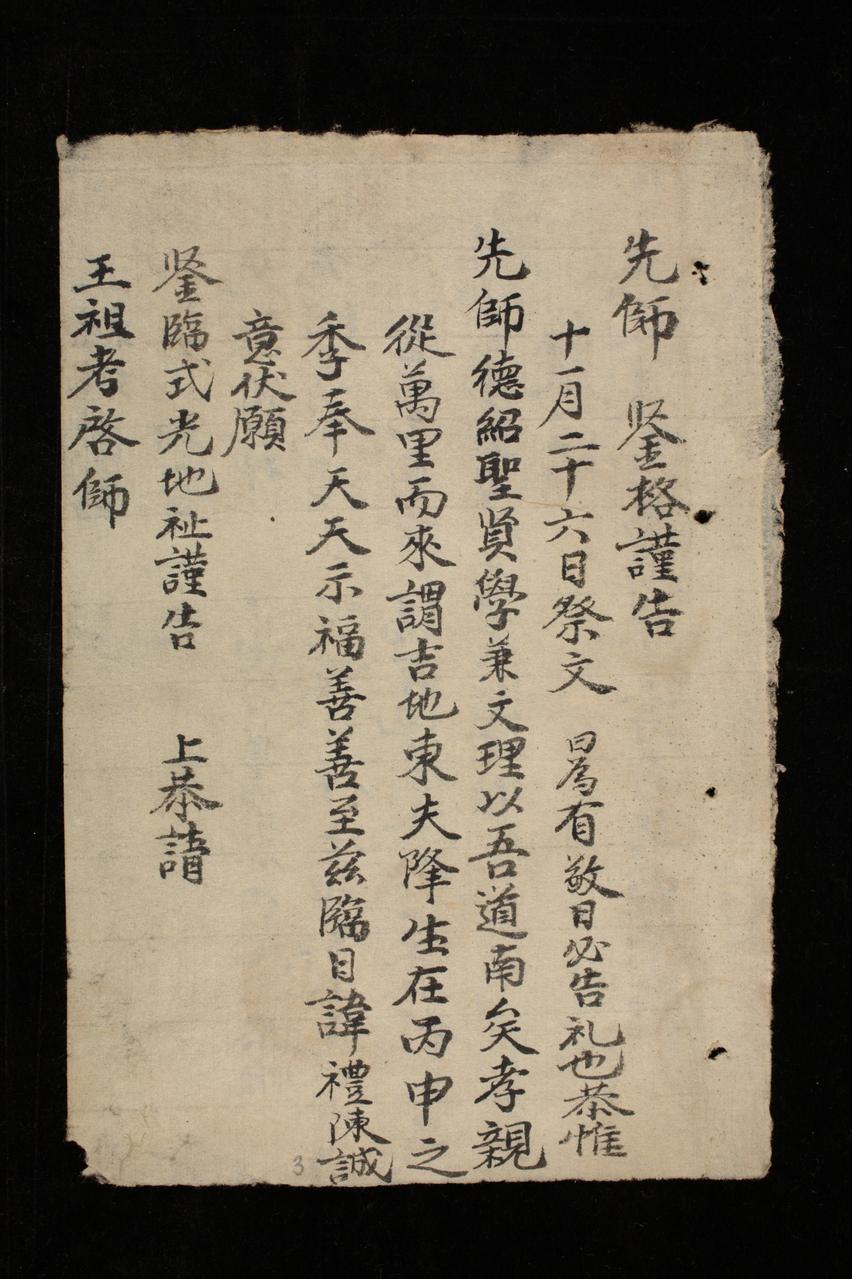 先師　鍳格謹告
十一月二十六日祭文　曰為有敬日必告礼也恭惟
先師德紹聖賢學兼文理以吾道南矣孝親
從萬里而來謂吉地東夫降生在丙申之
季奉天天示福善善至兹臨日諱禮陳誠
意伏願
鍳臨式光地祉謹告　上恭請
王祖考啓師
3